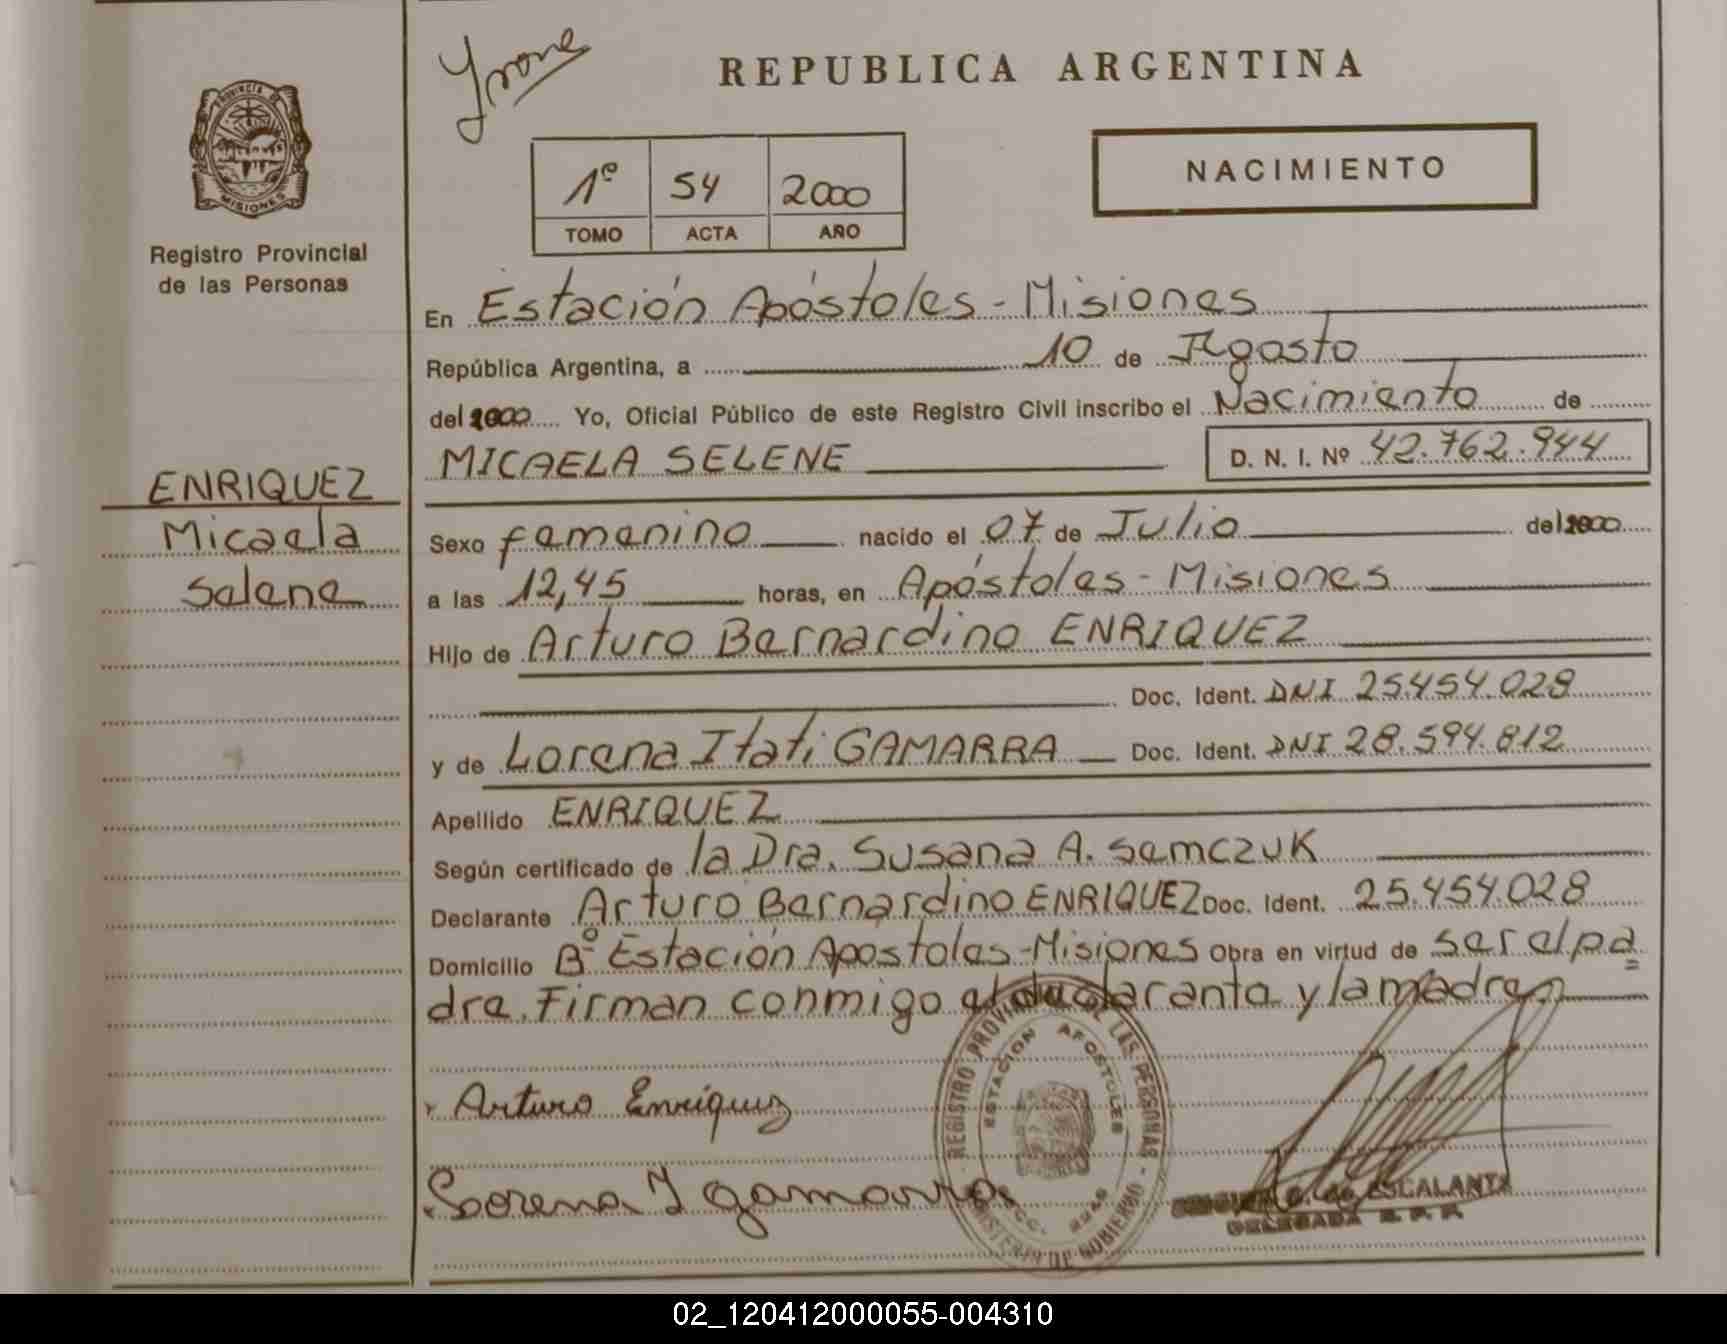 Yvone
REPUBLICA ARGENTINA
PROVINCIA DE MISIONES
Registro Provincial
de las Personas
1º 54 2000
TOMO ACTA AÑO
NACIMIENTO
En Estación Apóstoles - Misiones
República Argentina, a 10 de Agosto
del 2000 Yo, Oficial Público de este Registro Civil inscribo el Nacimiento de
MICAELA SELENE D. N. I. Nº 42.762.944
ENRIQUEZ
Micaela
Selene
Sexo femenino nacido el 07 de Julio del 2000
a las 12,45 horas, en Apóstoles - Misiones
Hijo de Arturo Bernardino ENRIQUEZ
Doc. Ident. DNI 25.454.028
y de Lorena Itati GAMARRA Doc. Ident. DNI 28.594.812
Apellido ENRIQUEZ
Según certificado de la Dra. Susana A. Semczuk
Declarante Arturo Bernardino ENRIQUEZ Doc. Ident. 25.454.028
Domicilio Bº Estación Apostoles-Misiones Obra en virtud de ser el pa=
dre. Firman conmigo el declarante y la madre
Arturo Enriquez
Lorena I gamarra
REGISTRO PROVINCIAL DE LAS PERSONAS - MINISTERIO DE GOBIERNO
ESTACION APOSTOLES
ESCALANTE
DELEGADA R. P. P.
02_120412000055-004310